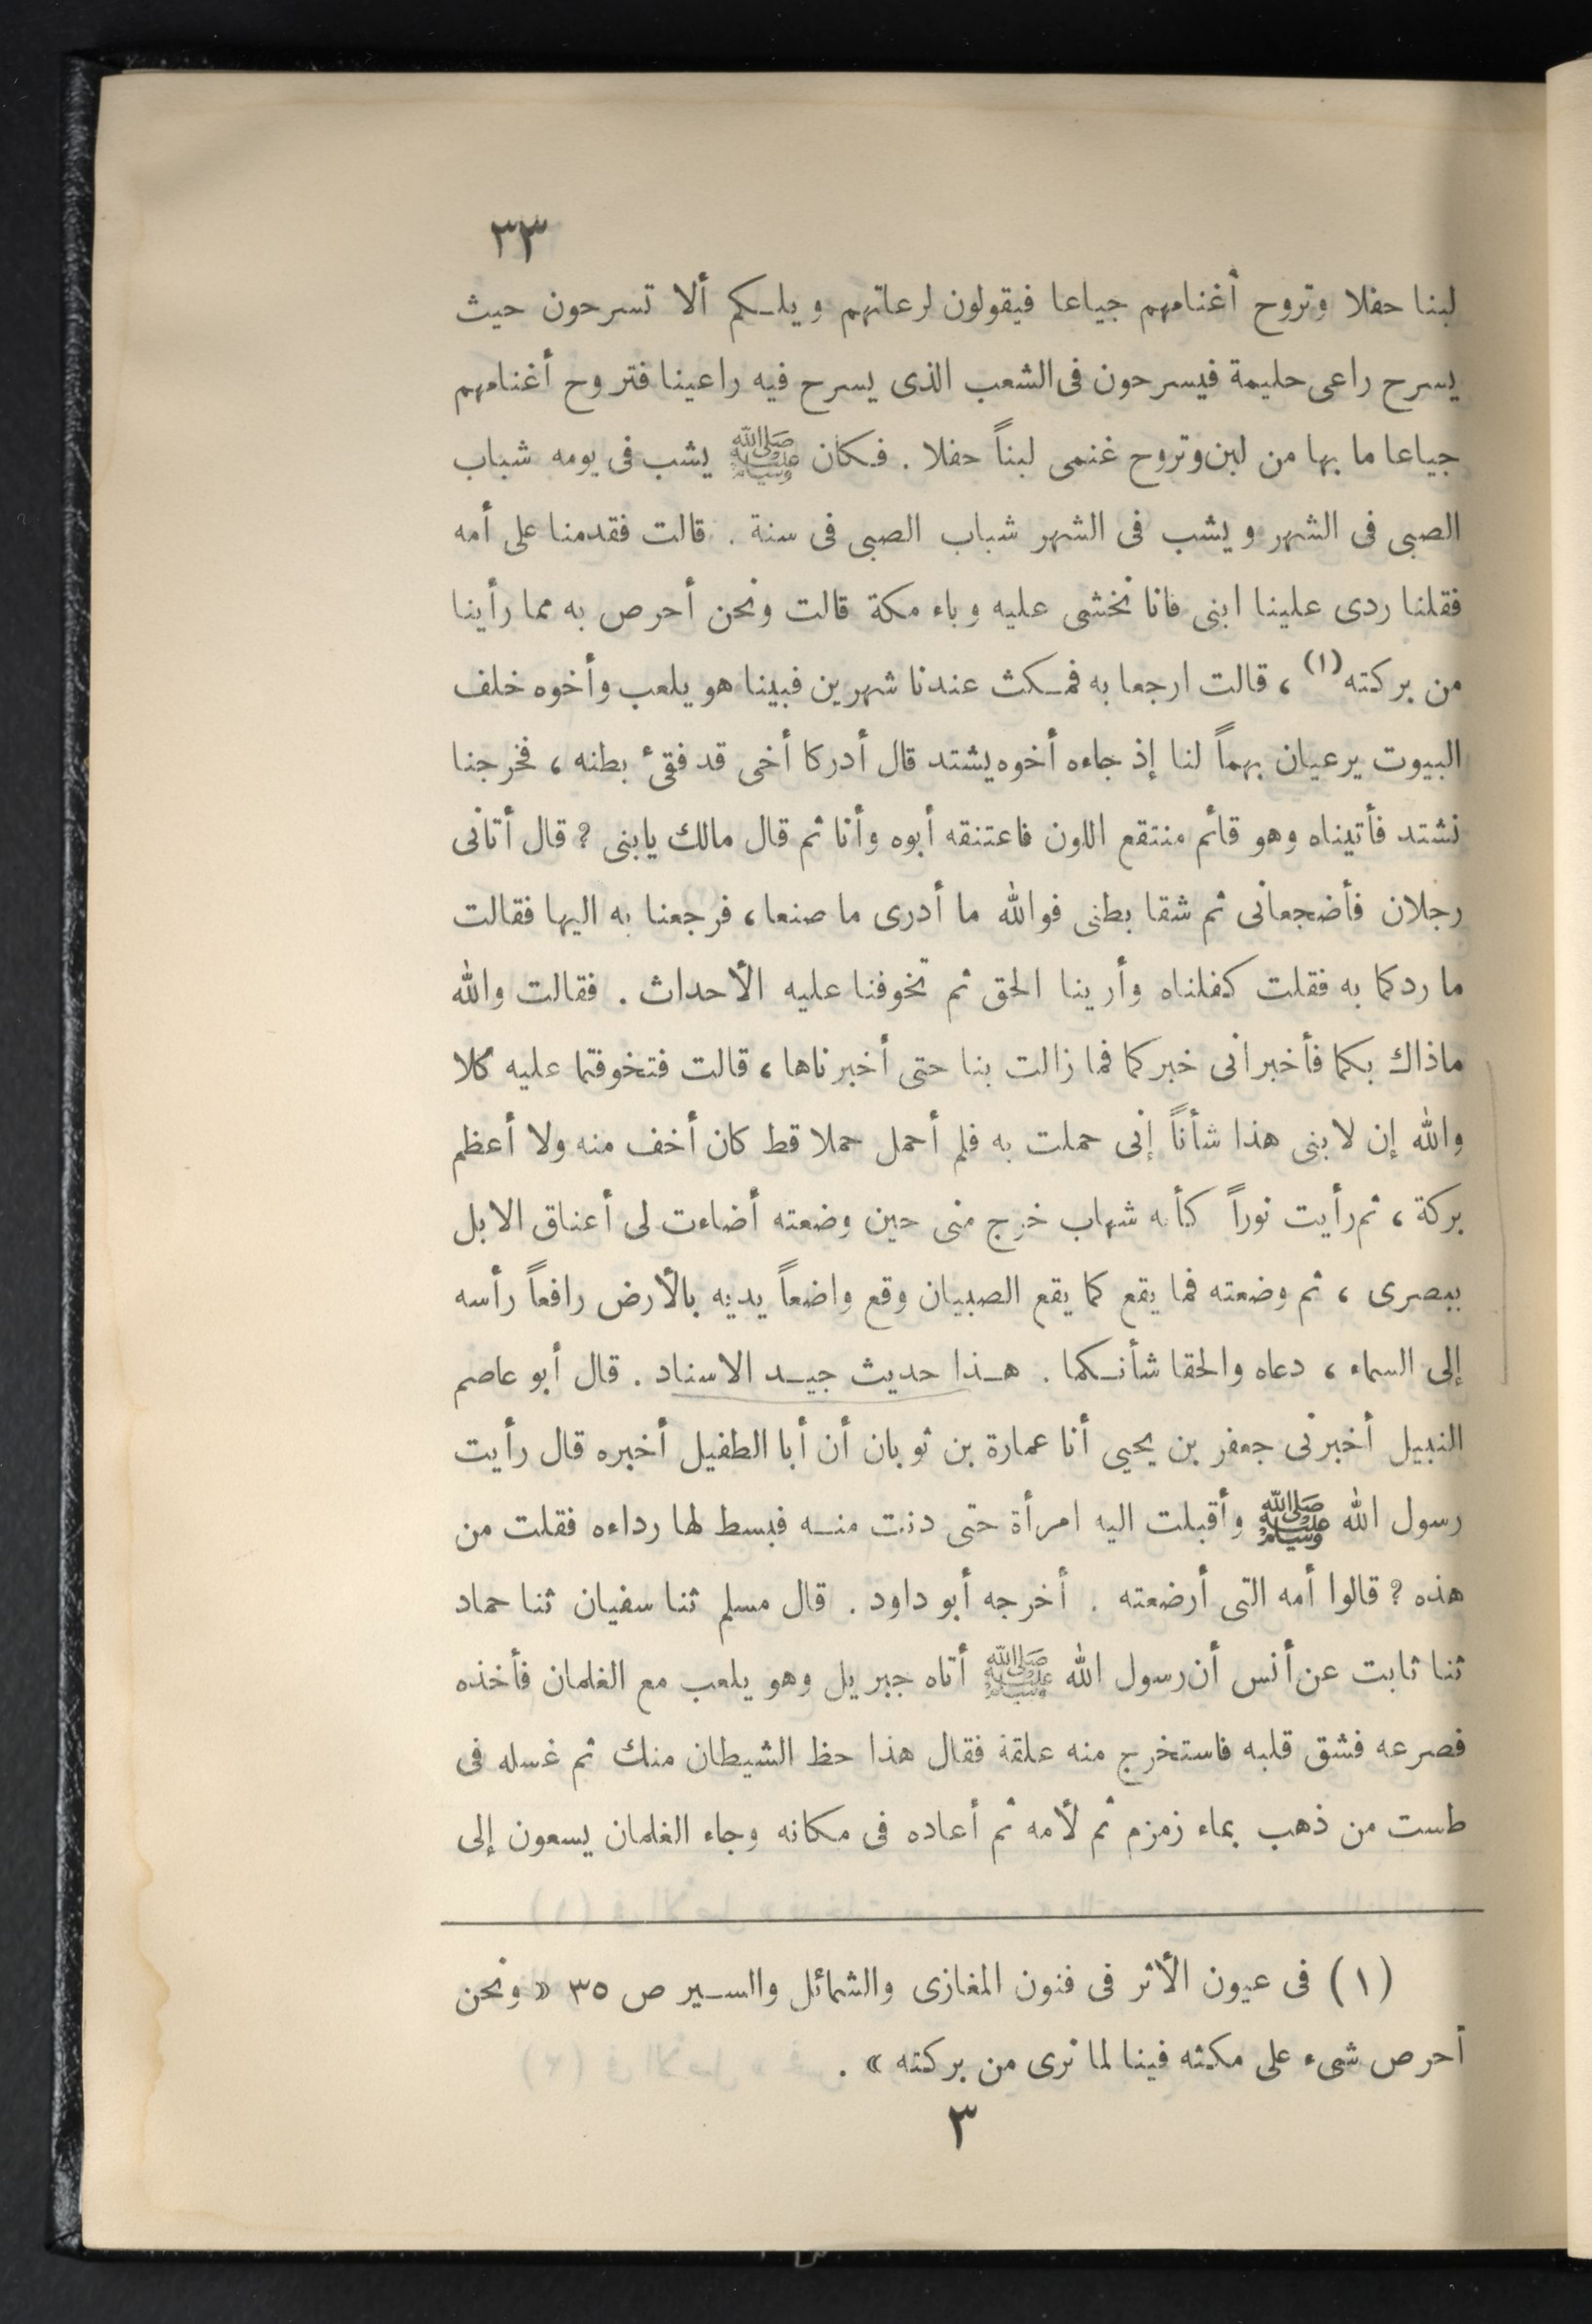 ٣٣
لبنا حفلا وتروح أغنامهم جياعا فيقولون لرعاتهم ويلكم ألا تسرحون حيث
يسرح راعى حليمة فيسرحون فى الشعب الذى يسرح فيه راعينا فتروح أغنامهم
جياعا ما بها من لبن وتروح غنمى لبناً حفلا . فكان ﷺ يشب فى يومه شباب
الصبى فى الشهر ويشب فى الشهر شباب الصبى فى سنة . قالت فقدمنا على أمه
فقلنا ردى علينا ابنى فانا نخشى عليه وباء مكة قالت ونحن أحرص به مما رأينا
من بركته (١) ، قالت ارجعا به فمكث عندنا شهرين فبينا هو يلعب وأخوه خلف
البيوت يرعيان بهماً لنا إذ جاءه أخوه يشتد قال أدركا أخى قد فقئ بطنه ، فخرجنا
نشتد فأتيناه وهو قائم منتقع اللون فاعتنقه أبوه وأنا ثم قال مالك يابنى ؟ قال أتانى
رجلان فأضجعانى ثم شقا بطنى فوالله ما أدرى ما صنعا ، فرجعنا به اليها فقالت
ما ردكما به فقلت كفلناه وأرينا الحق ثم تخوفنا عليه الأحداث . فقالت والله
ماذاك بكما فأخبرانى خبركما فما زالت بنا حتى أخبرناها ، قالت فتخوفتما عليه كلا
والله إن لابنى هذا شأناً إنى حملت به فلم أحمل حملا قط كان أخف منه ولا أعظم
بركة ، ثم رأيت نوراً كأنه شهاب خرج منى حين وضعته أضاءت لى أعناق الابل
ببصرى ، ثم وضعته فما يقع كما يقع الصبيان وقع واضعاً يديه بالأرض رافعاً رأسه
إلى السماء ، دعاه والحقا شأنكما . هذا حديث جيد الاسناد . قال أبو عاصم
النبيل أخبرنى جعفر بن يحيى أنا عمارة بن ثوبان أن أبا الطفيل أخبره قال رأيت
رسول الله ﷺ وأقبلت اليه امرأة حتى دنت منه فبسط لها رداءه فقلت من
هذه ؟ قالوا أمه التى أرضعته . أخرجه أبو داود . قال مسلم ثنا سفيان ثنا حماد
ثنا ثابت عن أنس أن رسول الله ﷺ أتاه جبريل وهو يلعب مع الغلمان فأخذه
فصرعه فشق قلبه فاستخرج منه علقة فقال هذا حظ الشيطان منك ثم غسله فى
طست من ذهب بماء زمزم ثم لأمه ثم أعاده فى مكانه وجاء الغلمان يسعون إلى
(١) فى عيون الأثر فى فنون المغازى والشمائل والسير ص ٣٥ « ونحن
أحرص شىء على مكثه فينا لما نرى من بركته » .
٣